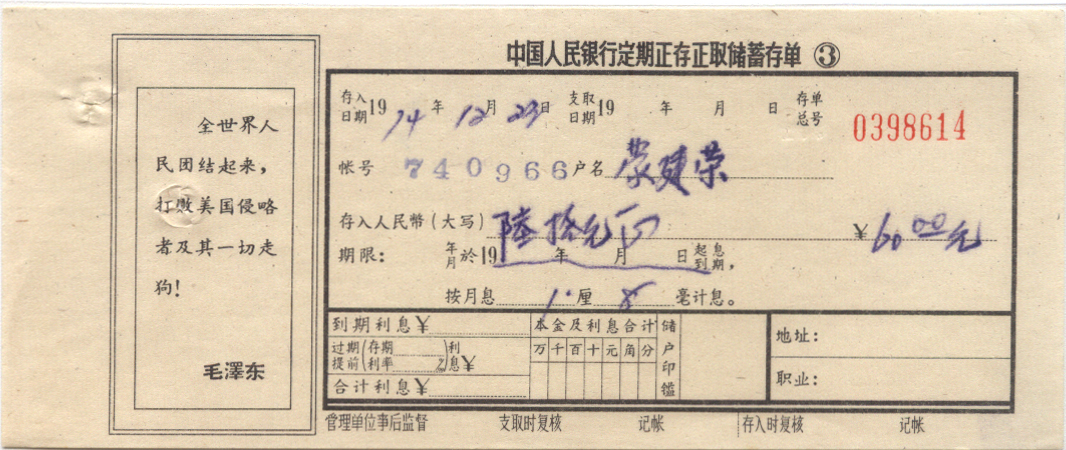 中国人民银行定期正存正取储蓄存单 ③
全世界人
民团结起来，
打败美国侵略
者及其一切走
狗！
毛澤东
存入日期 1974年12月23日 支取日期 19 年 月 日 存单总号 0398614
帐号 740966 户名 蒙建荣
存入人民幣（大写）陸拾元 ￥60.00元
期限： 年月於19 年 月 日起息到期，
按月息 1. 厘 8 毫计息。
到期利息￥
过期（存期 ）利
提前（利率 %息￥
合计利息￥
本金及利息合计
万千百十元角分
储户印鑑
地址：
职业：
管理单位事后监督 支取时复核 记帐 存入时复核 记帐